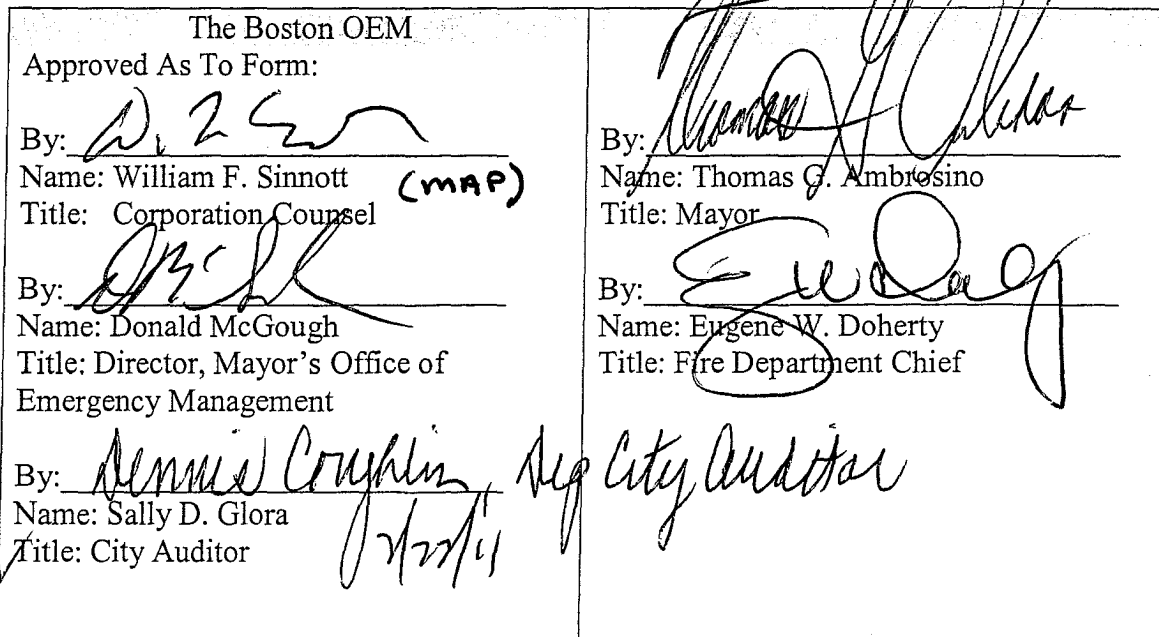 The Boston OEM
Approved As To Form:
By:
Name: William F. Sinnott (MAP)
Title: Corporation Counsel
By:
Name: Donald McGough
Title: Director, Mayor's Office of
Emergency Management
By: Dennis Coughlin, Dep City Auditor
Name: Sally D. Glora
Title: City Auditor
By: Thomas G
Name: Thomas G. Ambrosino
Title: Mayor
By:
Name: Eugene W. Doherty
Title: Fire Department Chief